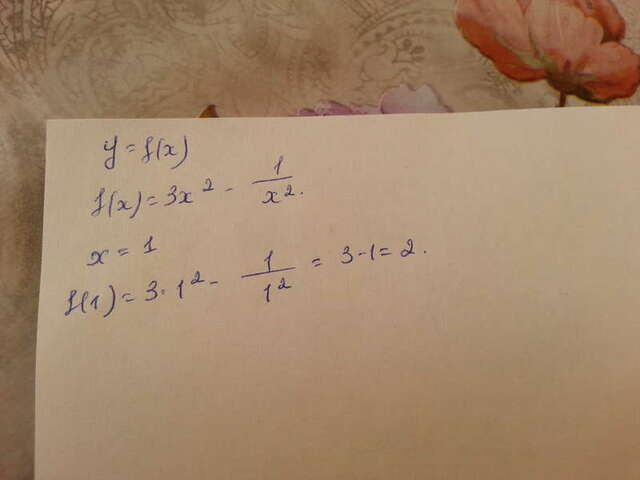 y = f(x)
f(x) = 3x² - 1/x².
x = 1
f(1) = 3·1² - 1/1² = 3-1 = 2.